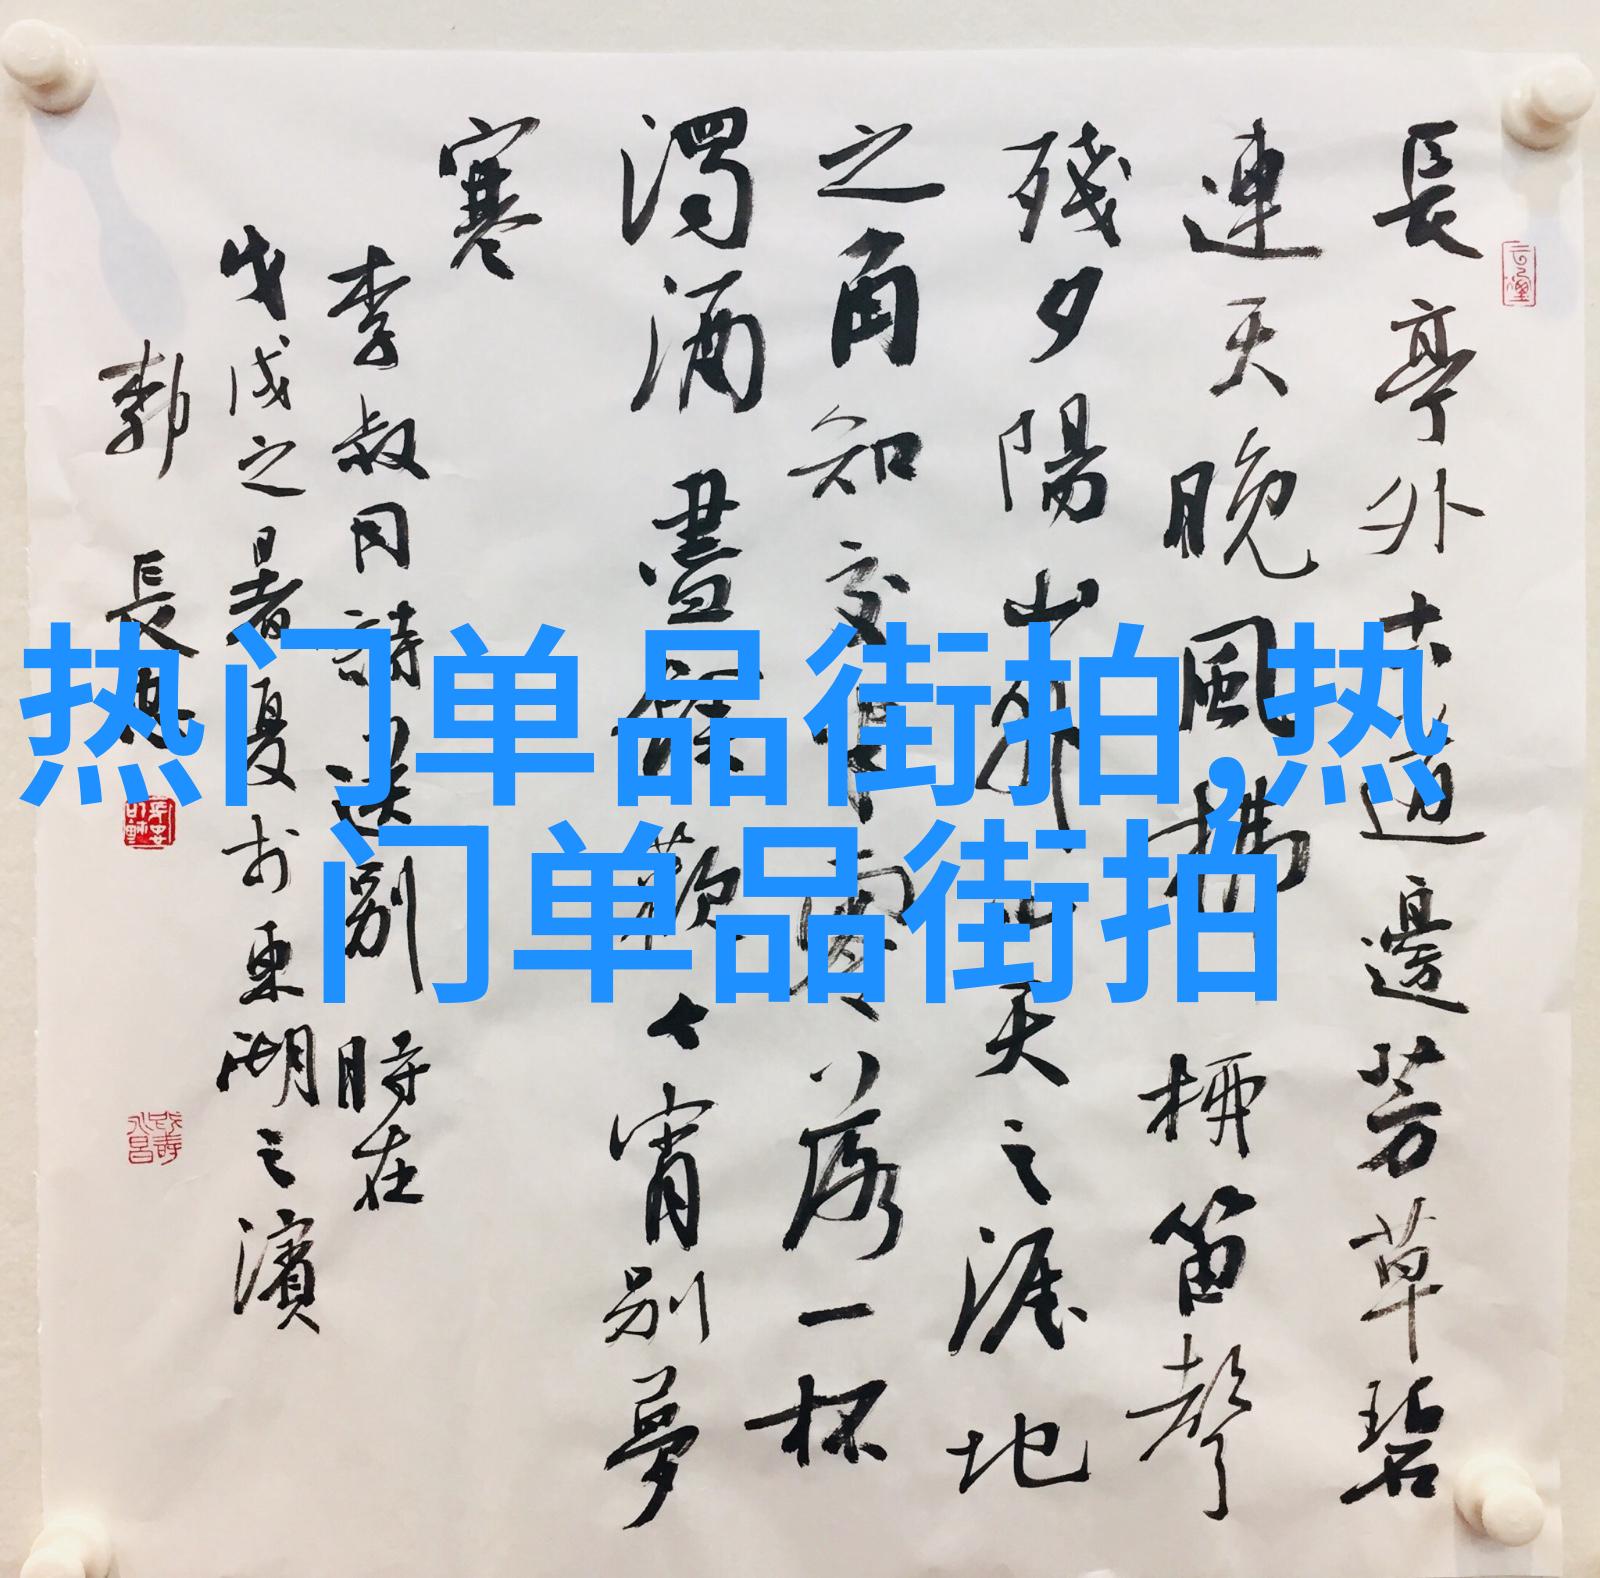 热门单品街拍,热
门单品街拍
長亭外古道邊芳草碧
連天晚風拂柳笛聲
殘夕陽山外山天之涯地
之角知交半零落一杯
濁酒盡餘歡今宵別夢
寒
李叔同詩送別 時在
戊戌之暑夏於東湖之濱
長